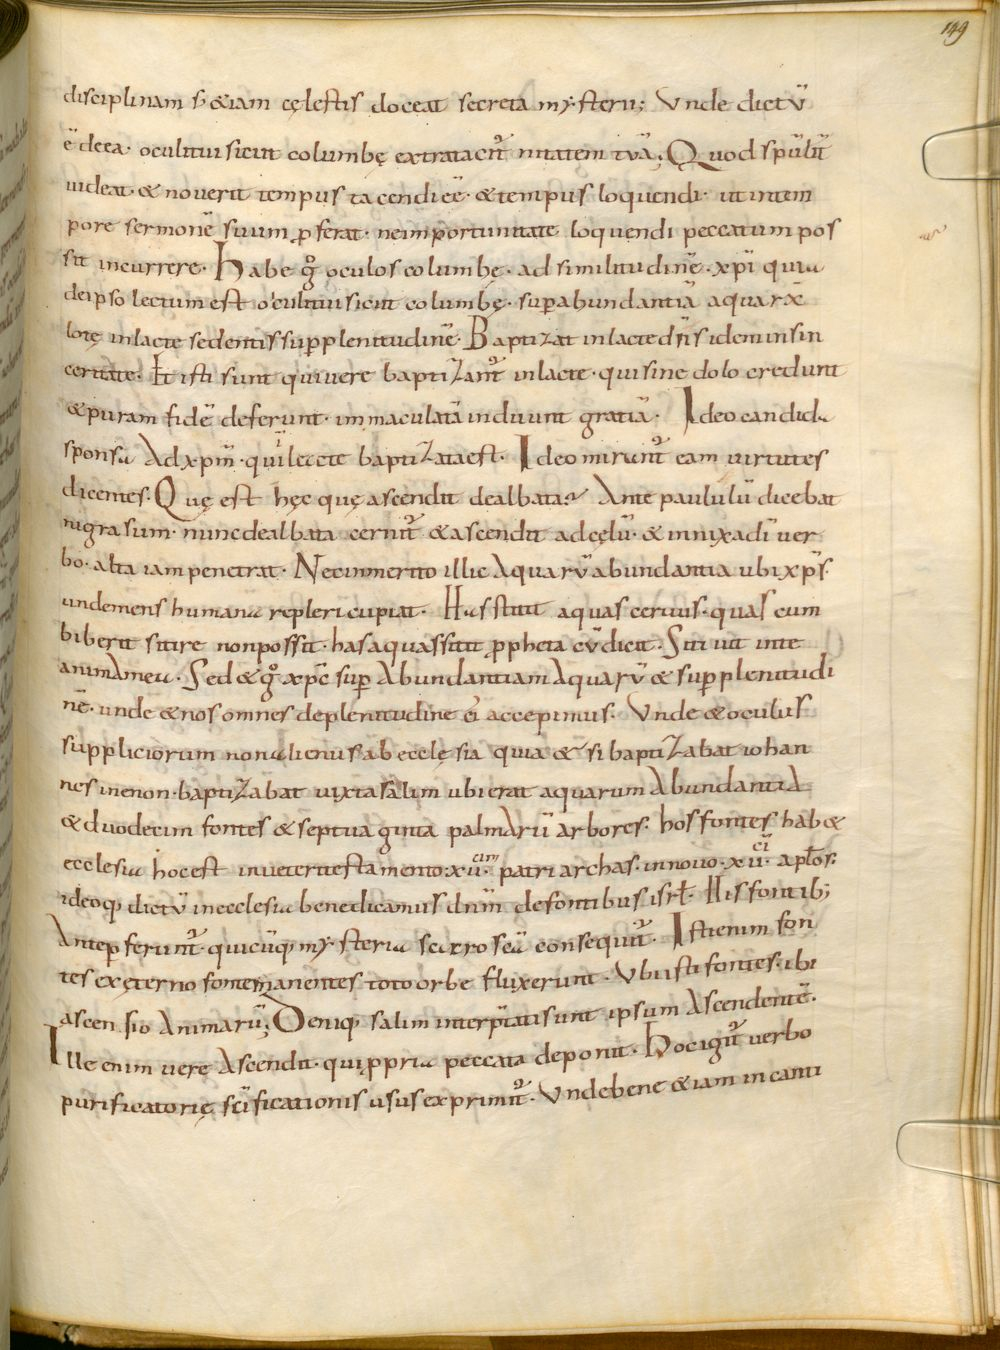 149
disciplinam s; &iam cęlestis doceat secreta mysterii; Unde dictū
ē deea· oculitui sicut columbę extrataciť nitatem tuā; Quod spūliť
uideat· & nouerit tempus tacendi eē· & tempus loquendi· ut in tem
pore sermonē suum ꝓferat· ne importunitate loquendi peccatum pos
sit incurrere· Habe gͦ oculos columbę· ad similitudinē· xpi quia
de ipso lectum est oculitui sicut columbę· suꝑ abundantiā aquarū
lotę in lacte sedentis suꝑ plenitudinē· Baptizat in lacte dn̄s idem in sin
ceritate· Et isti sunt qui uere baptizant̄ in lacte· qui sine dolo credunt
& puram fidē deferunt· immaculatā induunt gratiā· Ideo candida
sponsa Ad xpm̄· qui leccte baptizata est· Ideo mirunt̄ eam uirtutes
dicentes· Quę est hęc quę ascendit dealbata? Ante paululū dicebat
nigra sum· nunc dealbata cernit̄ & ascendit ad cęlū· & innixa dī uer
bo· alta iam penetrat· Nec inmerito illic Aquarū abundantia ubi xps̄
unde mens humana repleri cupiat· Has sitiit aquas ceruus· quas cum
biberit sitire non possit· has aquas sitit ꝓpheta cū dicit· Sitiuit in te
anima mea· Sed & gͦ xpc̄ suꝑ Abundantiam Aquarū & suꝑ plenitudi
nē· unde & nos omnes de plenitudine ei accepimus· Unde & oculus
suppliciorum non alienus ab ecclęsia quia & si baptizabat iohan
nes in enon· baptizabat iuxta salim ubi erat aquarum Abundantia
& duodecim fontes & septuaginta palmarū arbores· hos fontes hab&
ecclesia hoc est in ueteri testamento· xii·cim patriarchas· in nouo· xii·ci aptos·
ideoq; dictū in ecclesia benedicamus dnm̄ de fontibus isrł· His fontib;
Anteꝑferunt̄· quicūq; mysteria sacro seā consequit̄· Isti enim fon
tes ex ęterno fonte manentes toto orbe fluxerunt· Ubi isti fontes· ibi
ascensio Animarū; Deniq; salim interp̄tati sunt ipsum Ascendentē·
Ille enim uere Ascendit· qui ppria peccata deponit· Hoc igit̄ uerbo
purificatorię sc̄ificationis usus exprimit̄· Unde bene & iam in canti